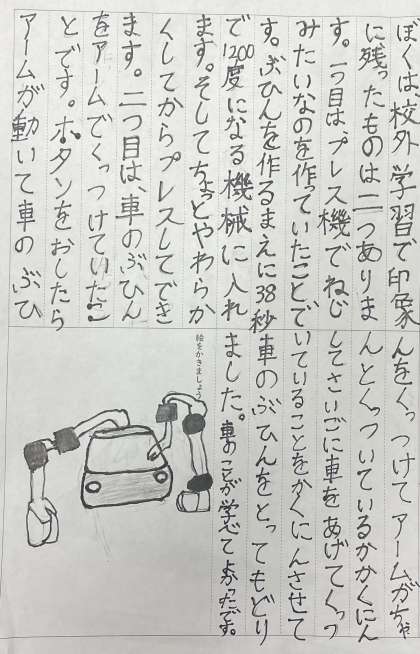 ぼくは、校外学習で印象
に残ったものは二つありま
す。一つ目は、プレス機でねじ
みたいなのを作っていたことで
す。ぶひんを作るまえに38秒
で1200度になる機械に入れ
ます。そしてちょっとやわらか
くしてからプレスしてでき
ます。二つ目は、車のぶひん
をアームでくっつけていたこ
とです。ボタンをおしたら
アームが動いて車のぶひ
んをくっつけてアームがちゃ
んとくっついているかかくにん
してさいごに車をあげてくっつ
いていることをかくにんさせて
車のぶひんをとってもどり
ました。車のことが学べてよかったです。
絵をかきましょう